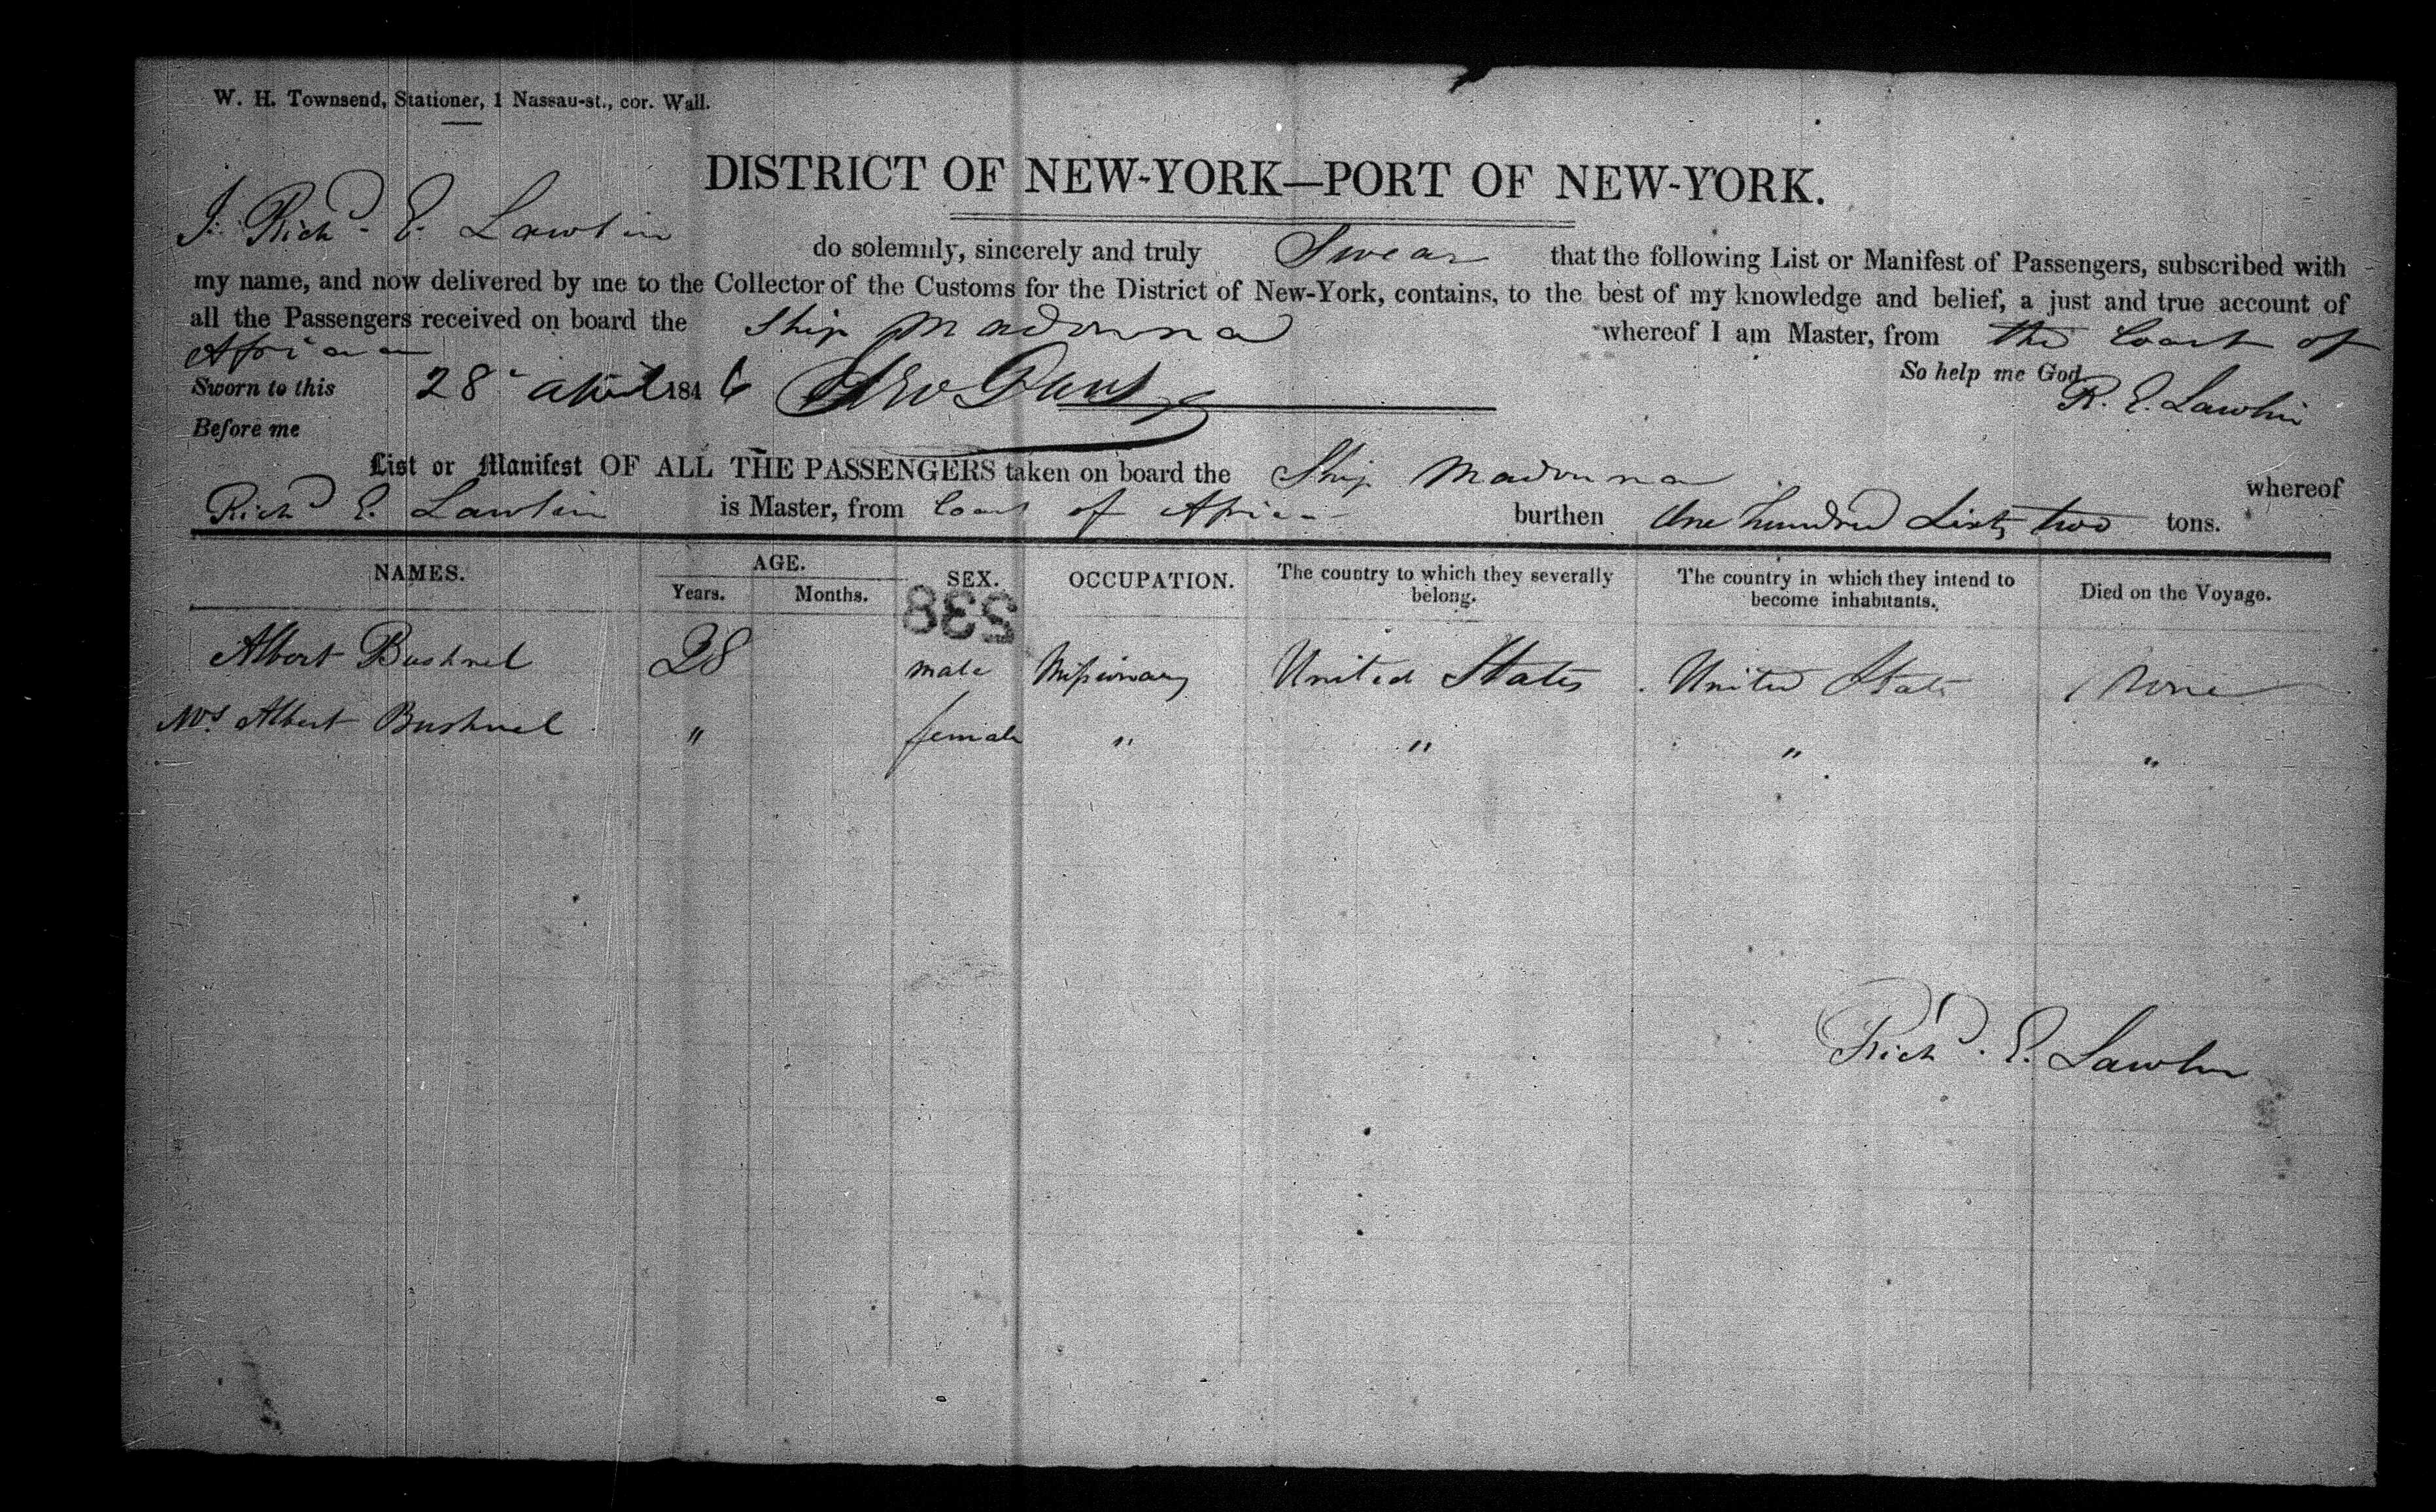 W. H. Townsend, Stationer, 1 Nassau-st., cor. Wall.
DISTRICT OF NEW-YORK—PORT OF NEW-YORK.
I. Richd. E. Lawlin do solemnly, sincerely and truly Swear that the following List or Manifest of Passengers, subscribed with
my name, and now delivered by me to the Collector of the Customs for the District of New-York, contains, to the best of my knowledge and belief, a just and true account of
all the Passengers received on board the Ship Madonna whereof I am Master, from the Coast of
Africa
So help me God
Sworn to this 28 April 1846
R. E. Lawlin
Before me
List or Manifest OF ALL THE PASSENGERS taken on board the Ship Madonna whereof
Richd E. Lawlin is Master, from Coast of Africa burthen One hundred Sixty two tons.
NAMES. AGE. Years. Months. SEX. OCCUPATION. The country to which they severally belong. The country in which they intend to become inhabitants. Died on the Voyage.
238
Albert Bushnel 28 male Missionary United States United States None
Mrs. Albert Bushnel " female " " " "
Richd. E. Lawlin